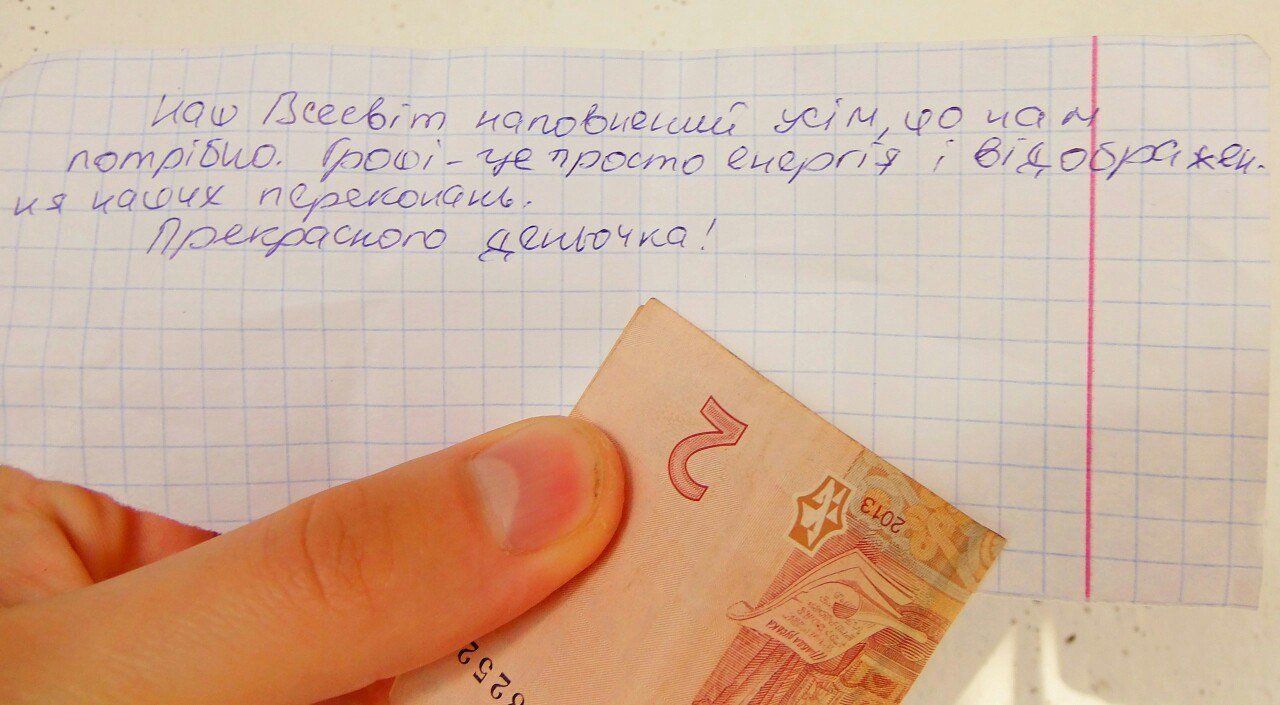 Наш Всесвіт наповнений усім, що нам
потрібно. Гроші - це просто енергія і відображен-
ня наших переконань.
Прекрасного деньочка!
2
2013
Правда Руська
3252